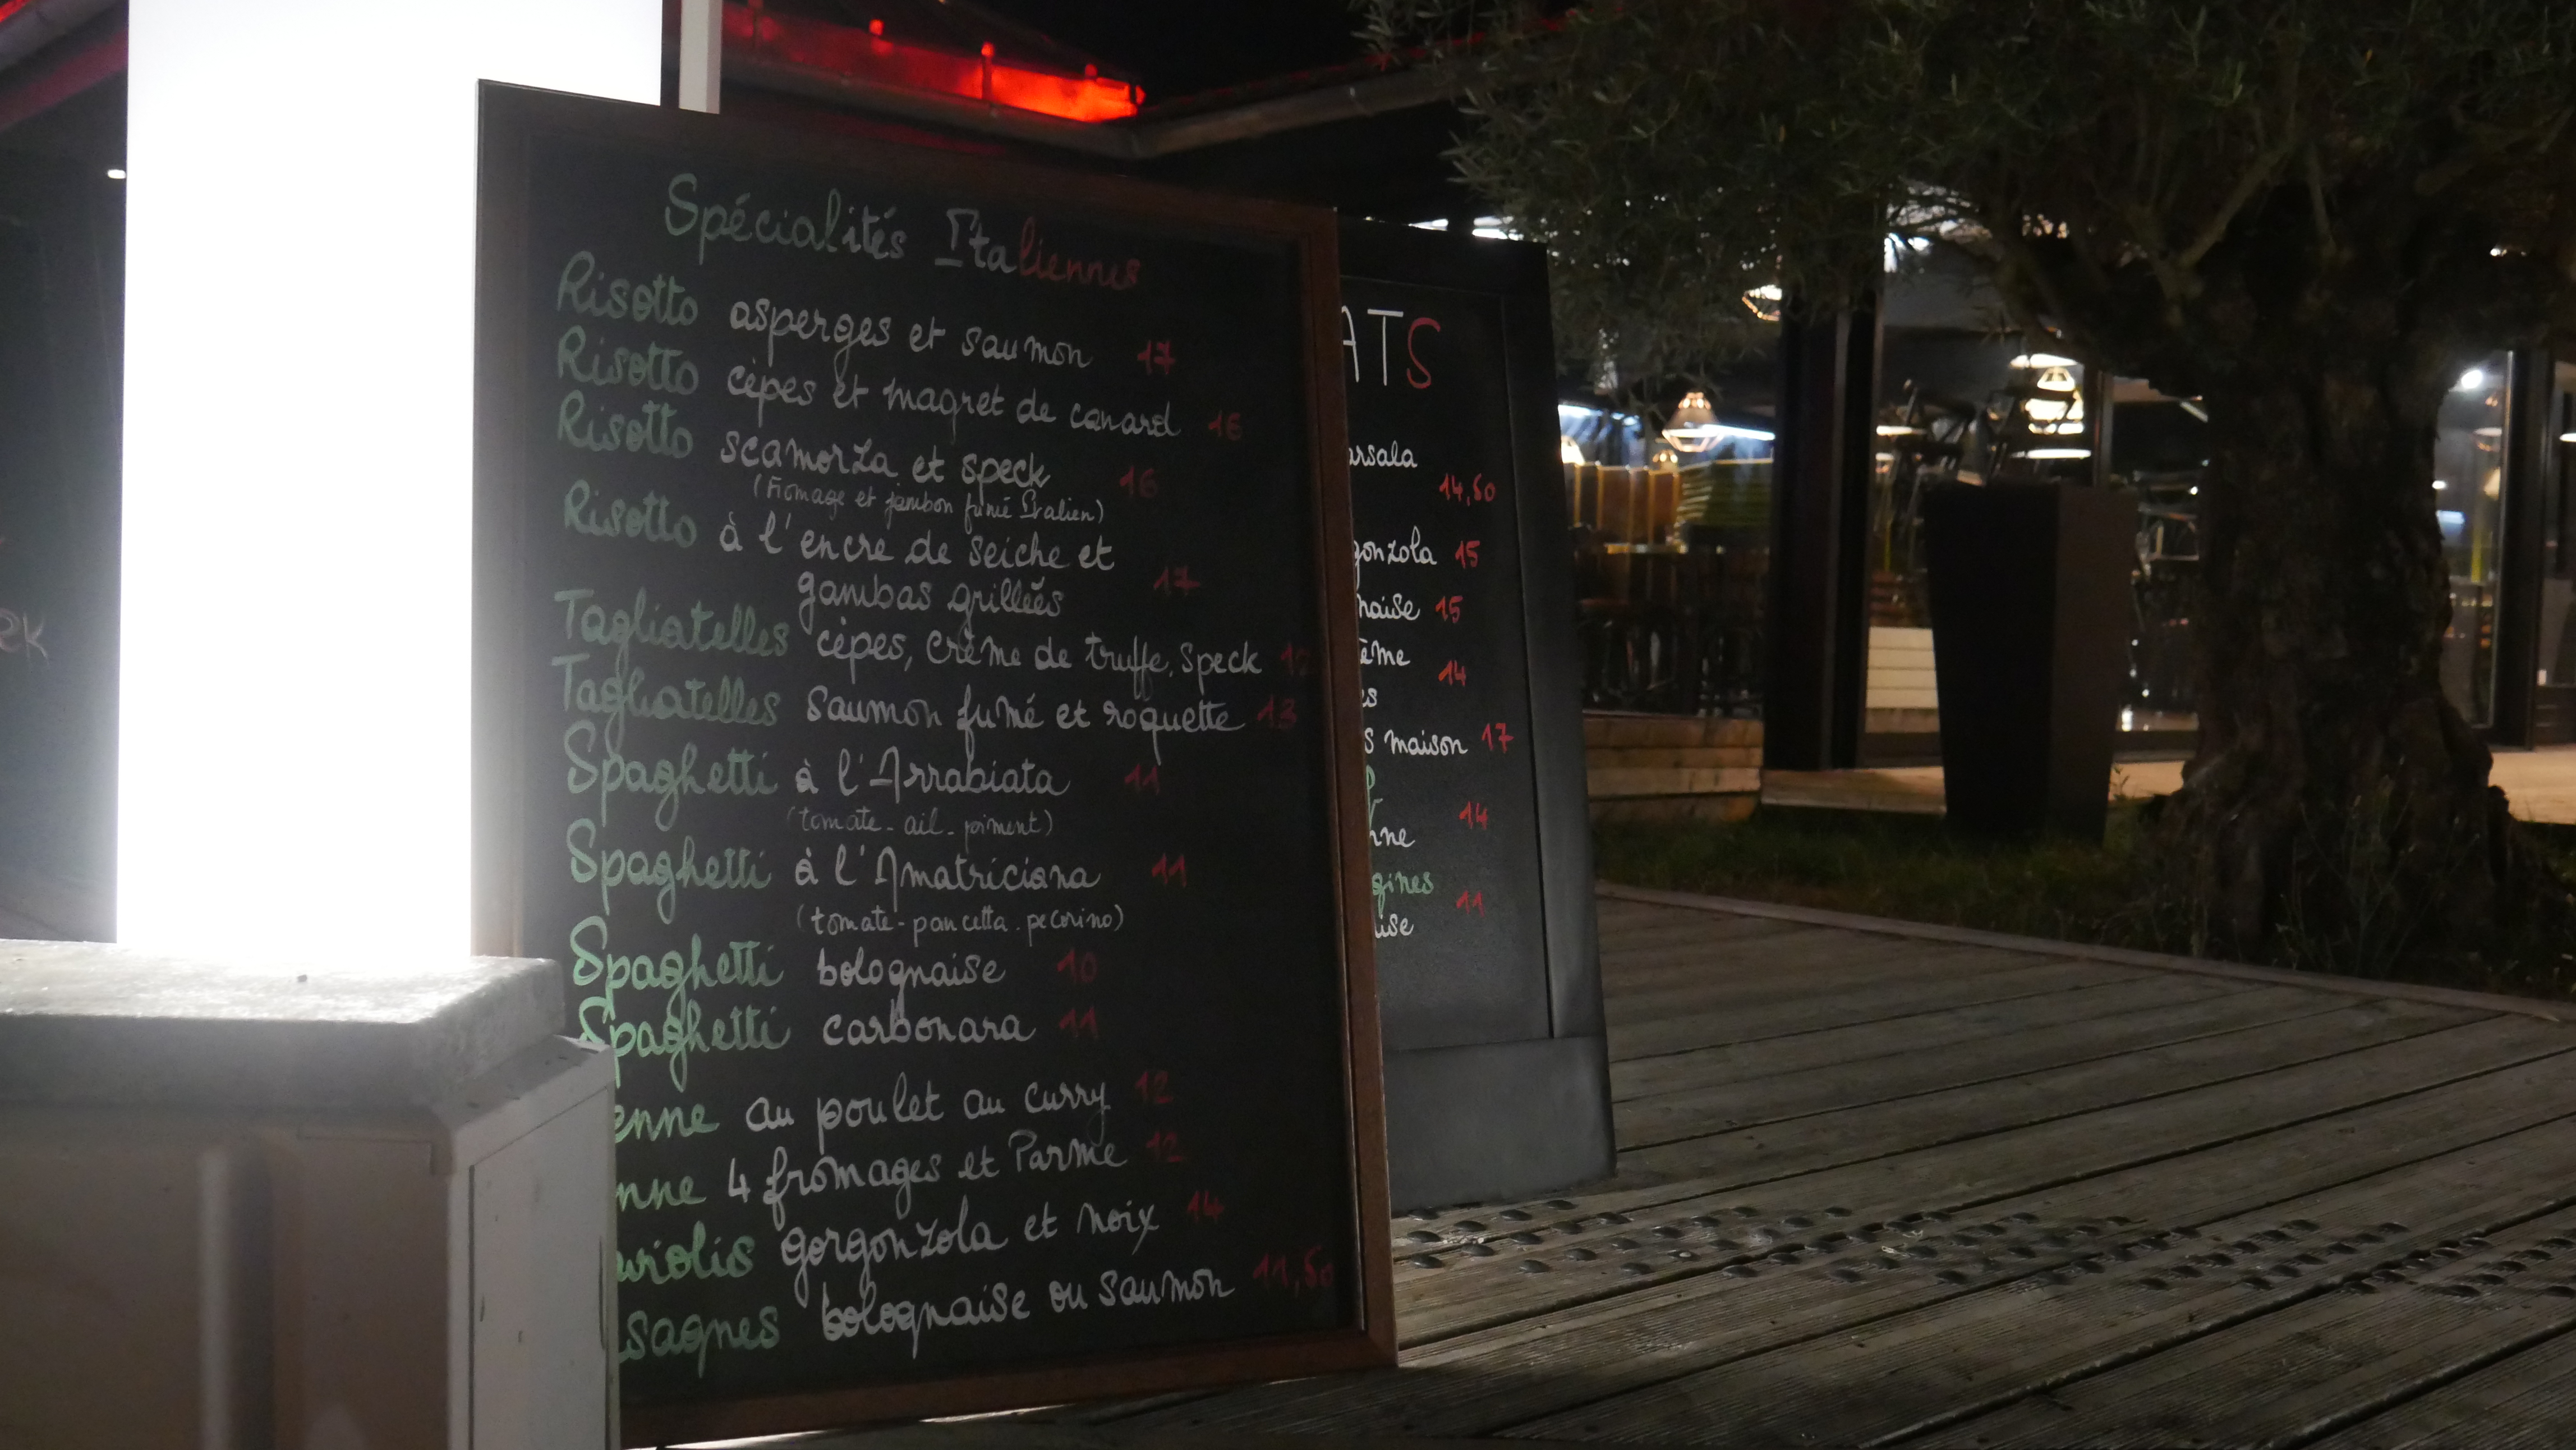 Spécialités Italiennes
Risotto asperges et saumon 17
Risotto cèpes et magret de canard 16
Risotto scamorza et speck 16
(Fromage et jambon fumé Italien)
Risotto à l'encre de seiche et
gambas grillées 17
Tagliatelles cèpes, crème de truffe, speck
Tagliatelles saumon fumé et roquette 13
Spaghetti à l'Arrabiata 11
(tomate - ail - piment)
Spaghetti à l'Amatriciana 11
(tomate - pancetta - pecorino)
Spaghetti bolognaise 10
Spaghetti carbonara 11
enne au poulet au curry 12
nne 4 fromages et Parme 12
violis gorgonzola et noix 14
sagnes bolognaise ou saumon 11,50
ATS
arsala
14,50
gonzola 15
naise 15
ème
14
s maison 17
14
nne
gines
11
ise
ek